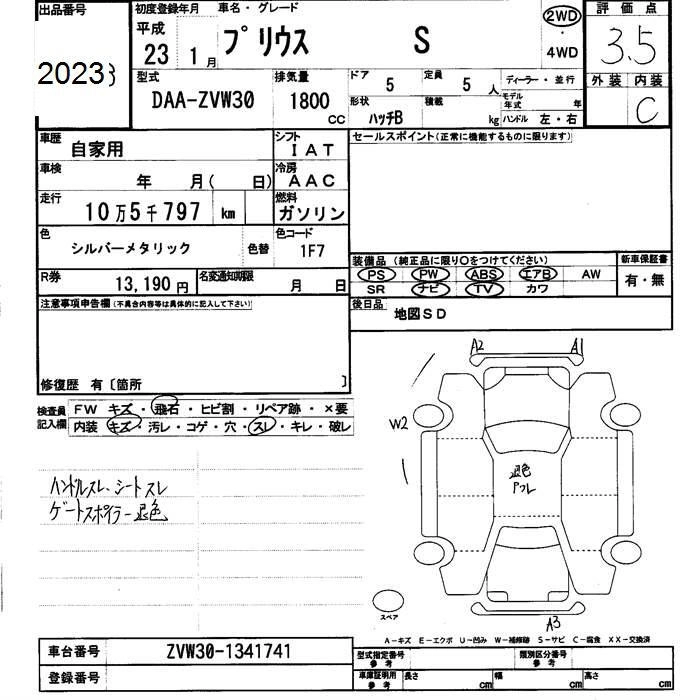 出品番号
20233
初度登録年月
平成
23 1 月
車名・グレード
プリウス S
2WD
・
4WD
評価点
3.5
外装 内装
C
型式
DAA-ZVW30
排気量
1800
CC
ドア
5
定員
5 人
形状
ハッチB
積載
kg
ディーラー・並行
モデル年式 年
ハンドル 左・右
車歴
自家用
シフト
IAT
車検
年 月( 日)
冷房
AAC
走行
10万5千797 km
燃料
ガソリン
色
シルバーメタリック
色替
色コード
1F7
R券
13,190 円
名変通知期限
月 日
セールスポイント(正常に機能するものに限ります)
装備品 (純正品に限り○をつけてください)
PS PW ABS エアB AW
SR ナビ TV カワ
新車保証書
有・無
後日品
地図SD
注意事項申告欄(不具合内容等は具体的に記入して下さい)
修復歴 有〔箇所 〕
検査員
記入欄
FW キズ・飛石・ヒビ割・リペア跡・×要
内装・キズ・汚レ・コゲ・穴・スレ・キレ・破レ
ハンドルスレ、シートスレ
ゲートスポイラー退色
A2 A1
W2
退色
スペア
A3
A-キズ E-エクボ U-凹み W-補修跡 S-サビ C-腐食 XX-交換済
車台番号
ZVW30-1341741
登録番号
型式指定番号
参考
類別区分番号
参考
車庫証明用
参考
長さ cm
幅 cm
高さ cm